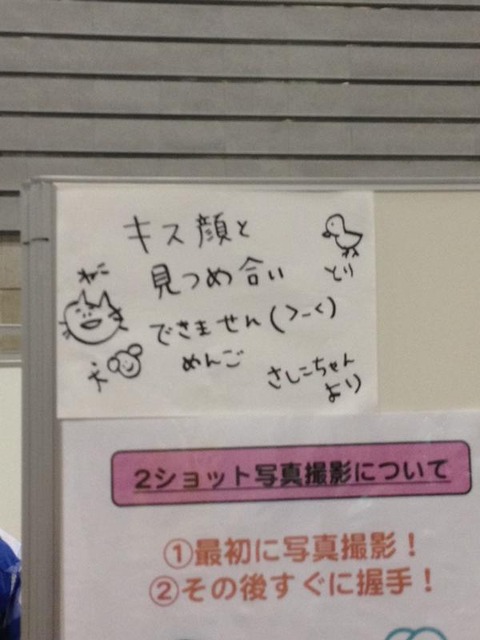 キス顔と
見つめ合い
できません(>-<)
めんご
さしこちゃん
より
ねこ
とり
犬
2ショット写真撮影について
①最初に写真撮影！
②その後すぐに握手！